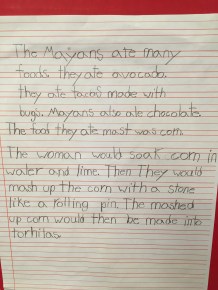 The Mayans ate many
foods. they ate avocado.
they ate tacos made with
bugs. Mayans also ate chocolate.
The food they ate most was corn.
The woman would soak corn in
water and lime. Then They would
mash up the corn with a stone
like a rolling pin. The mashed
up corn would then be made into
tortillas.